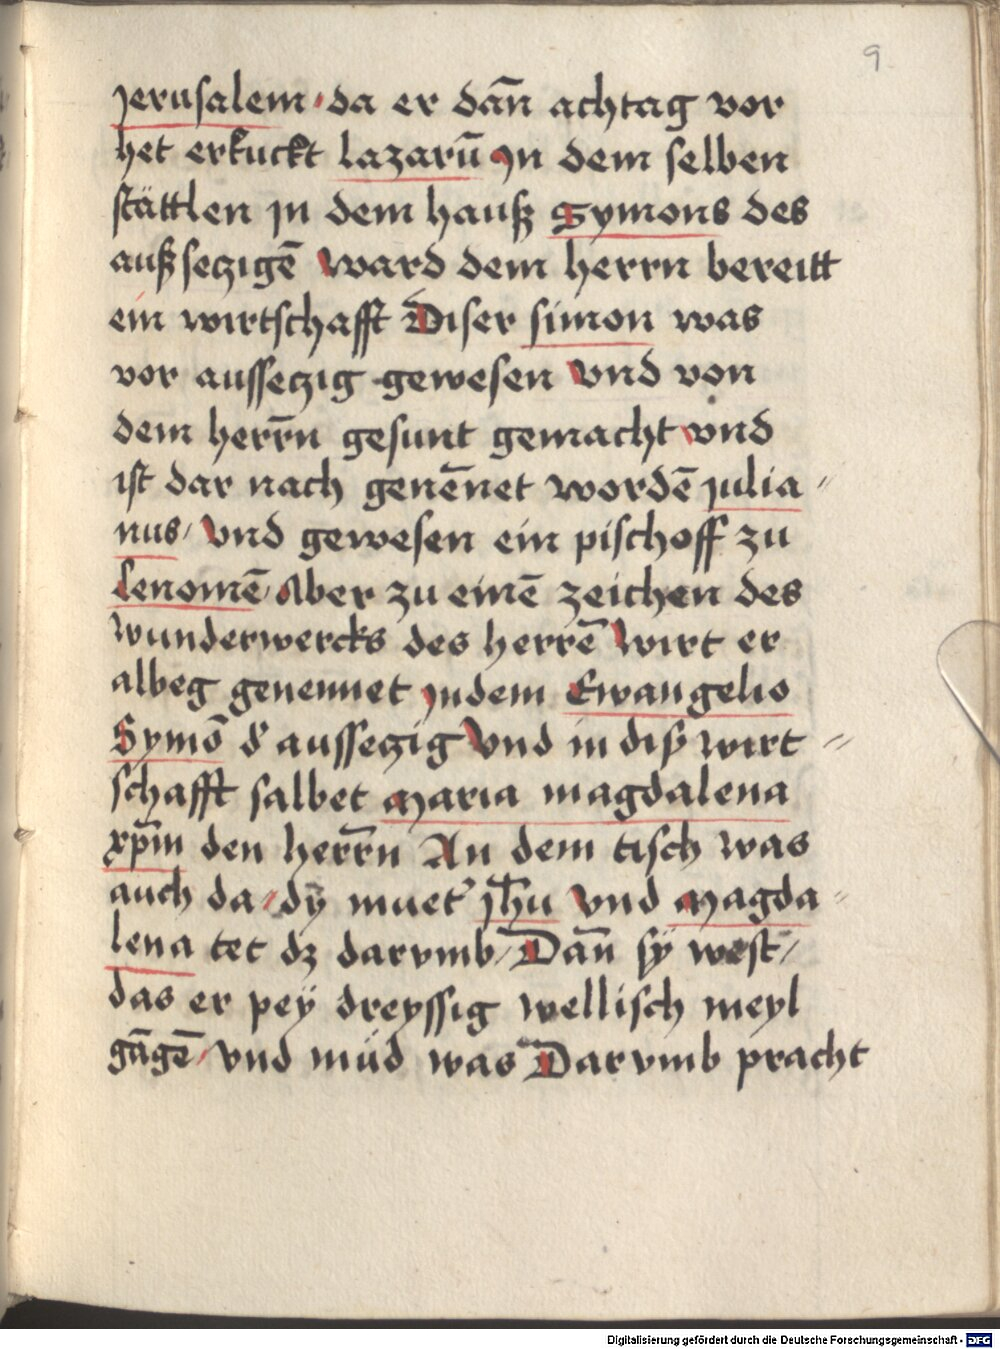 9
Jerusalem / da er dañ achtag vor
het erkuckt lazarū Jn dem selben
stättlen jn dem hauß Symons des
außseczigē Ward dem herrn bereitt
ein wirtschafft Diser simon was
vor ausseczig gewesen Vnd von
dem herr̄n gesunt gemacht vnd
ist dar nach genēnet wordē julia〃
nus / Vnd gewesen ein pischoff zu
lenomē / Aber zu einē zeichen des
wunderwercks des herrē Wirt er
albeg genennet Jndem Ewangelio
Symō d' ausseczig Vnd in diß wirt〃
schafft salbet Maria magdalena
xp̄m den herr̄n An dem tisch was
auch da / dÿ muet' jh̄u Vnd Magda〃
lena tet dz darvmb / Dañ sÿ west /
das er peÿ dreyssig wellisch meyl
gāgē / vnd müd was Darvmb pracht
Digitalisierung gefördert durch die Deutsche Forschungsgemeinschaft - DFG